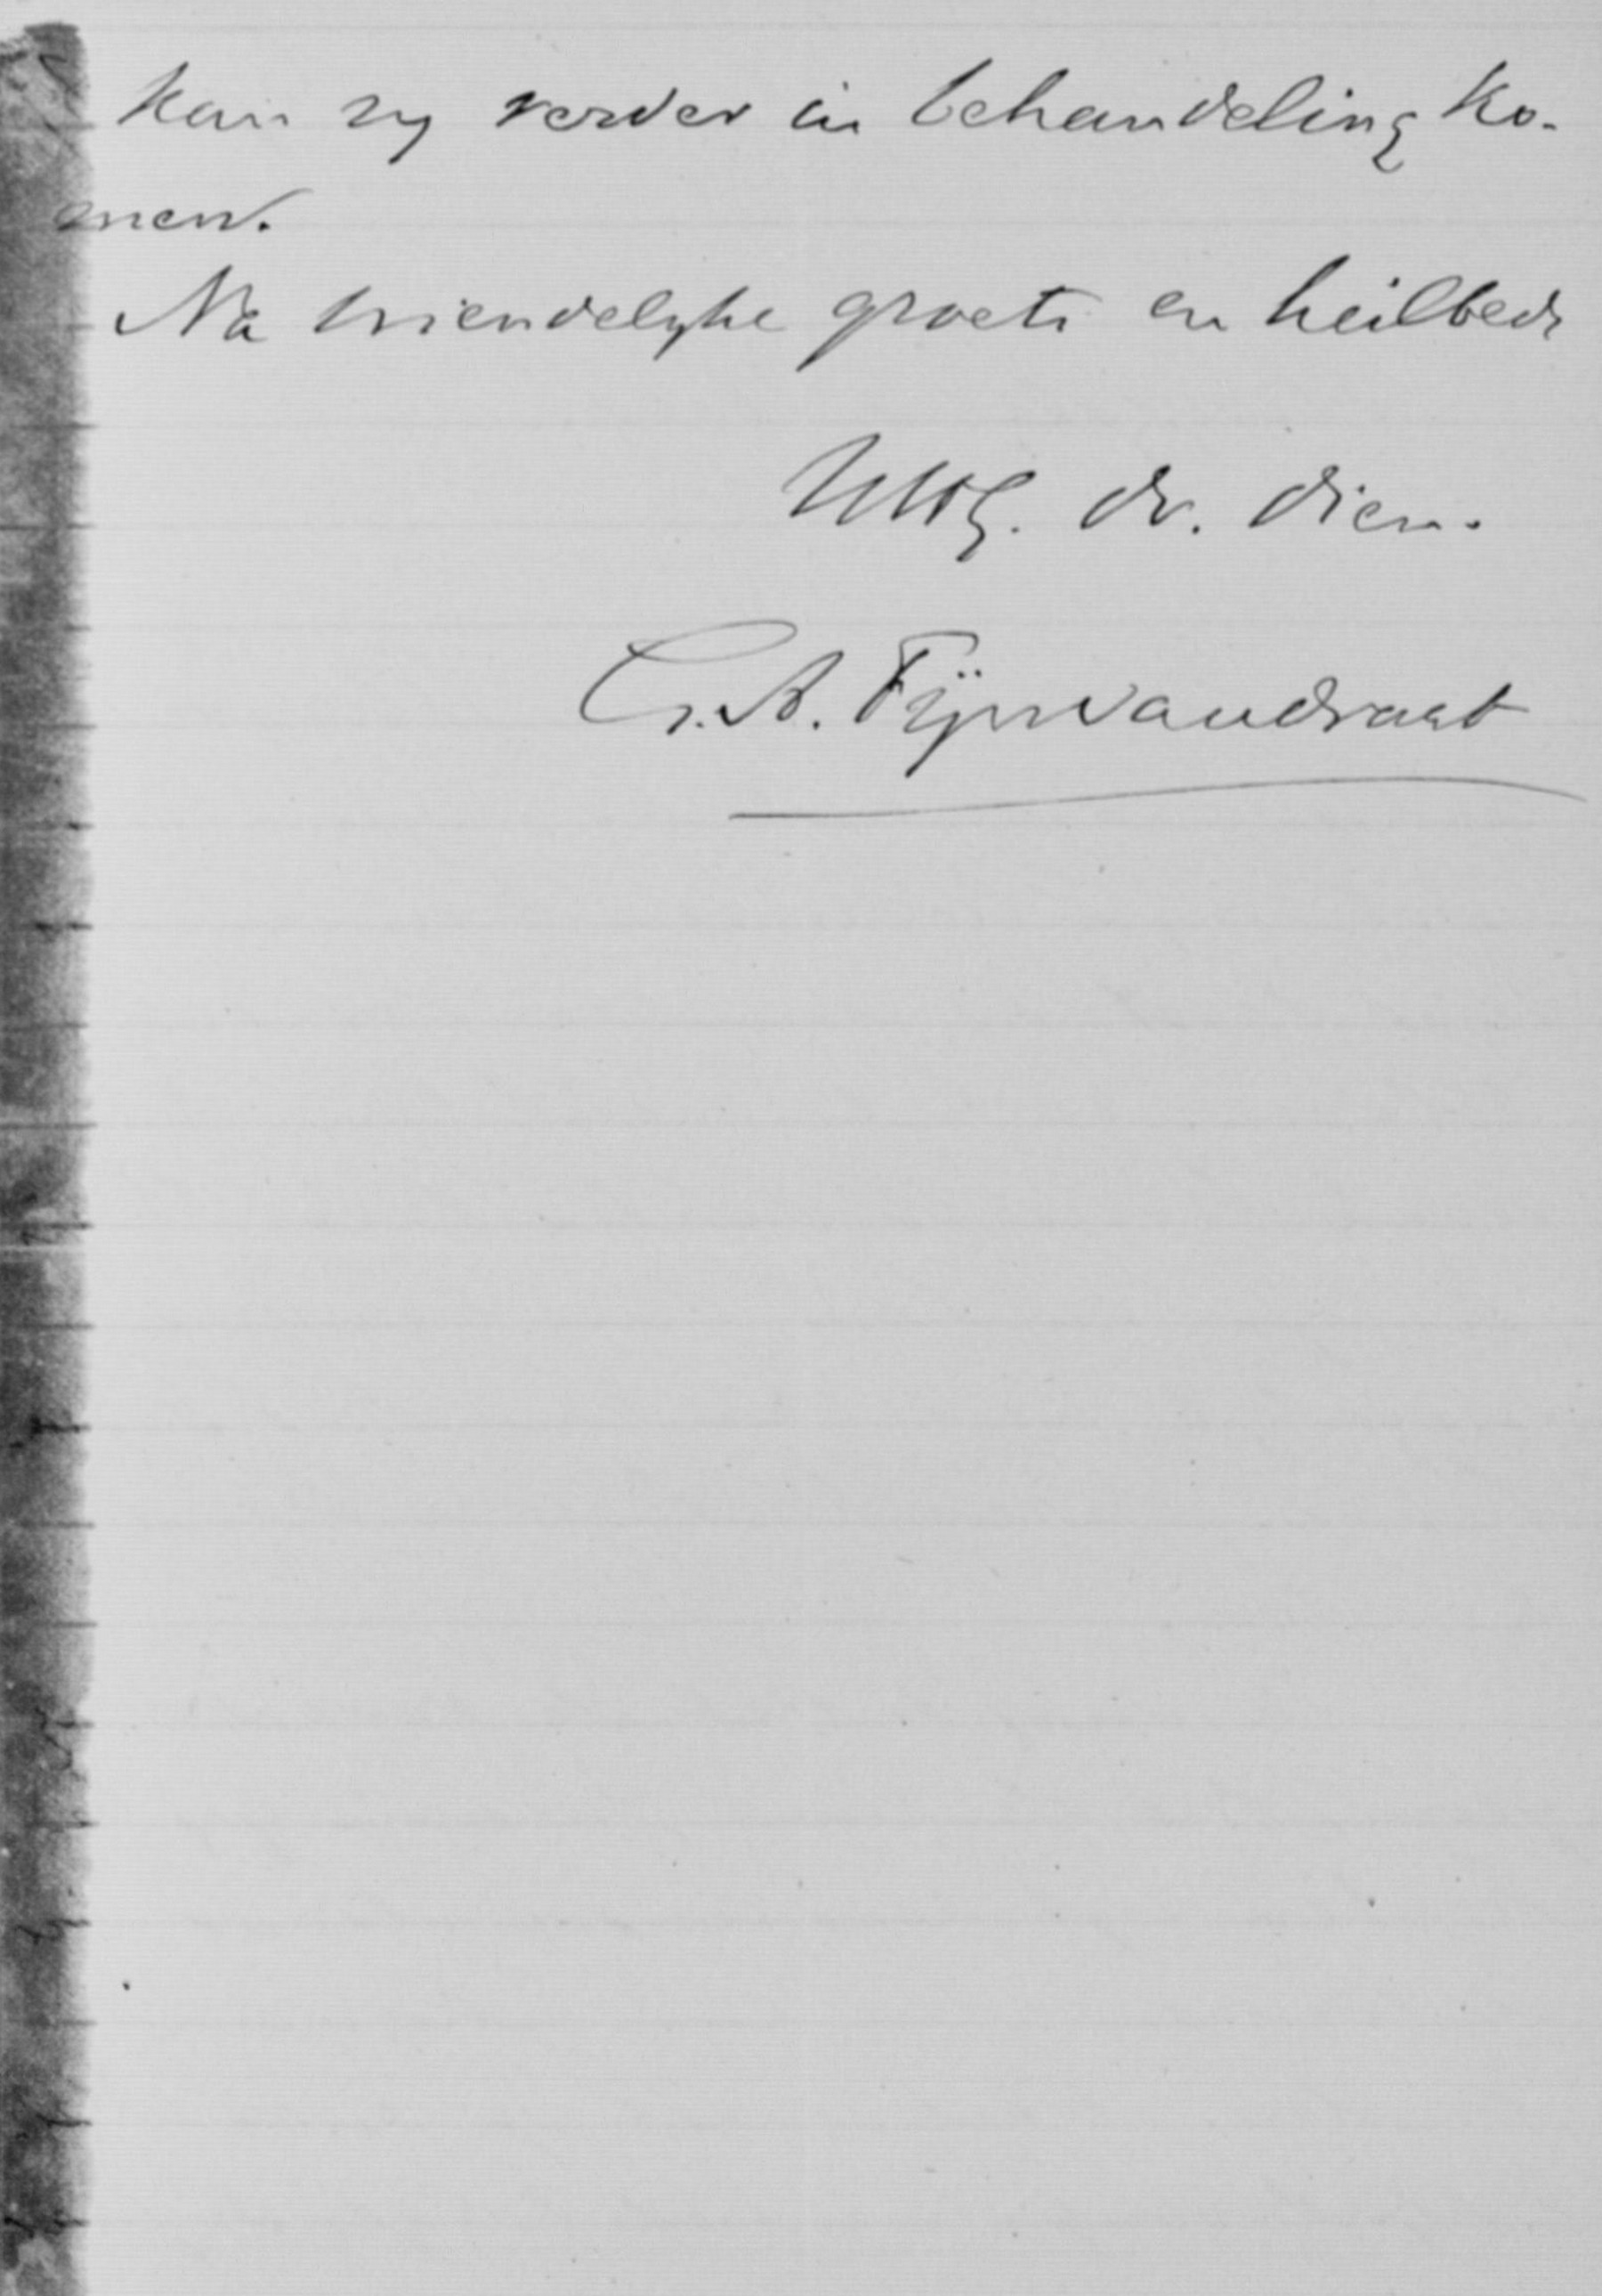 Kan zy verder in behandeling ko-
men.
Na vriendelyke groete en heilbede
UWEg. dv. dien.
C. A. Fÿnvandraat